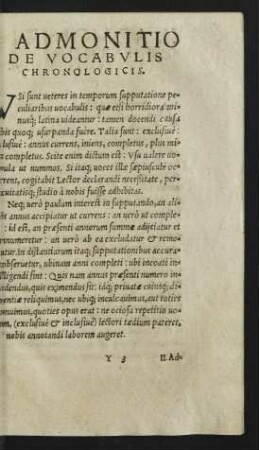 ADMONITIO
DE VOCABVLIS
CHRONOLOGICIS.
VSi sunt ueteres in temporum supputatione pe
culiaribus uocabulis: quæ etsi horridiora mi
nusq; latina uideantur: tamen docendi causa
bis quoq; usurpanda fuere. Talia sunt: exclusiué:
lusiué: annus currens, iniens, completus, plus mi
s completus. Scite enim dictum est: Vsu ualere uo-
mula ut nummos. Si itaq; uoces illæ sæpiuscule oc
rrent, cogitabit Lector declarandi necessitate, per-
cuitatisq; studio à nobis fuisse adhibitas.
Neq; uerò paulum interest in supputando, an ali
is annus accipiatur ut currens: an uerò ut comple-
: id est, an præsenti annorum summæ adijciatur et
nnumeretur: an uerò ab ea excludatur & remo
utur. In distantiarum itaq; supputationibus accura
bseruetur, ubinam anni completi: ubi incoati in
lligendi sint: Quis nam annus præsenti numero in
dendus, quis eximendus sit: idq; priuatæ cuiusq; di
entiæ reliquimus, nec ubiq; inculcauimus, aut toties
onuimus, quoties opus erat: ne ociosa repetitio uo-
m, (exclusiué & inclusiué) lectori tædium pareret,
nobis annotandi laborem augeret.
Y 3 II. Ad-